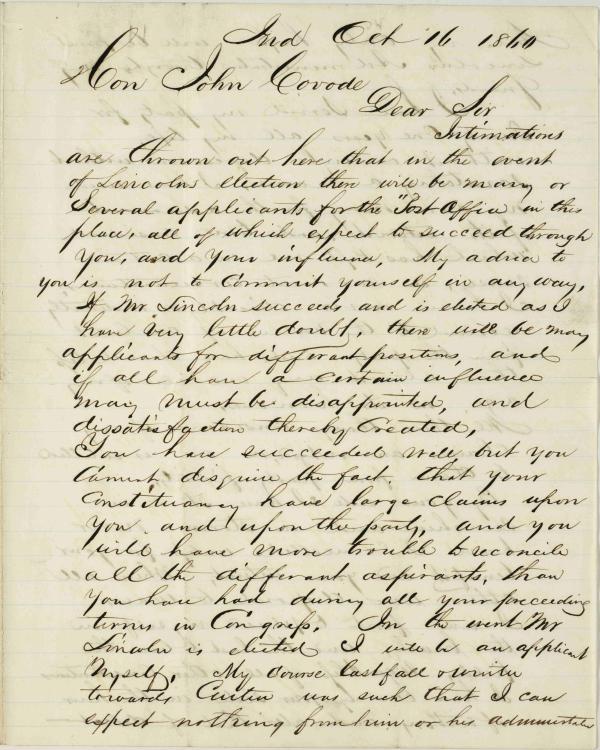 Ind Oct 16 1860
Hon John Covode
Dear Sir
Intimations
are thrown out here that in the event
of Lincolns election there will be many or
Several applicants for the "Post Office in this
place, all of which expect to succeed through
You, and Your influence, My advice to
you is not to Commit yourself in any way,
If Mr Lincoln succeeds and is elected as I
have very little doubt, there will be many
applicants for differant positions, and
if all have a certain influence
many must be disappointed, and
dissatisfaction thereby Created,
You have succeeded well but you
Cannot disguise the fact. that your
Constituancy have large claims upon
You and upon the party, and you
will have more trouble to reconcile
all the differant aspirants, than
You have had during all your preceeding
terms in Congress. In the event Mr
Lincoln is elected I will be an applicant
Myself, My course last fall & winter
towards Curtin was such that I can
expect nothing from him or his administra